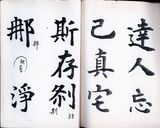 達人忘
己真宅
斯存剎
那淨